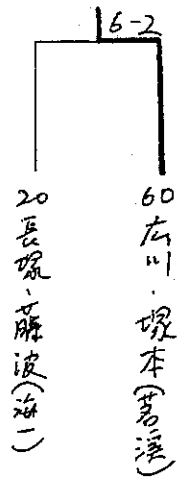 6-2
60 広川・塚本(茗溪)
20 長塚・藤波(海一)